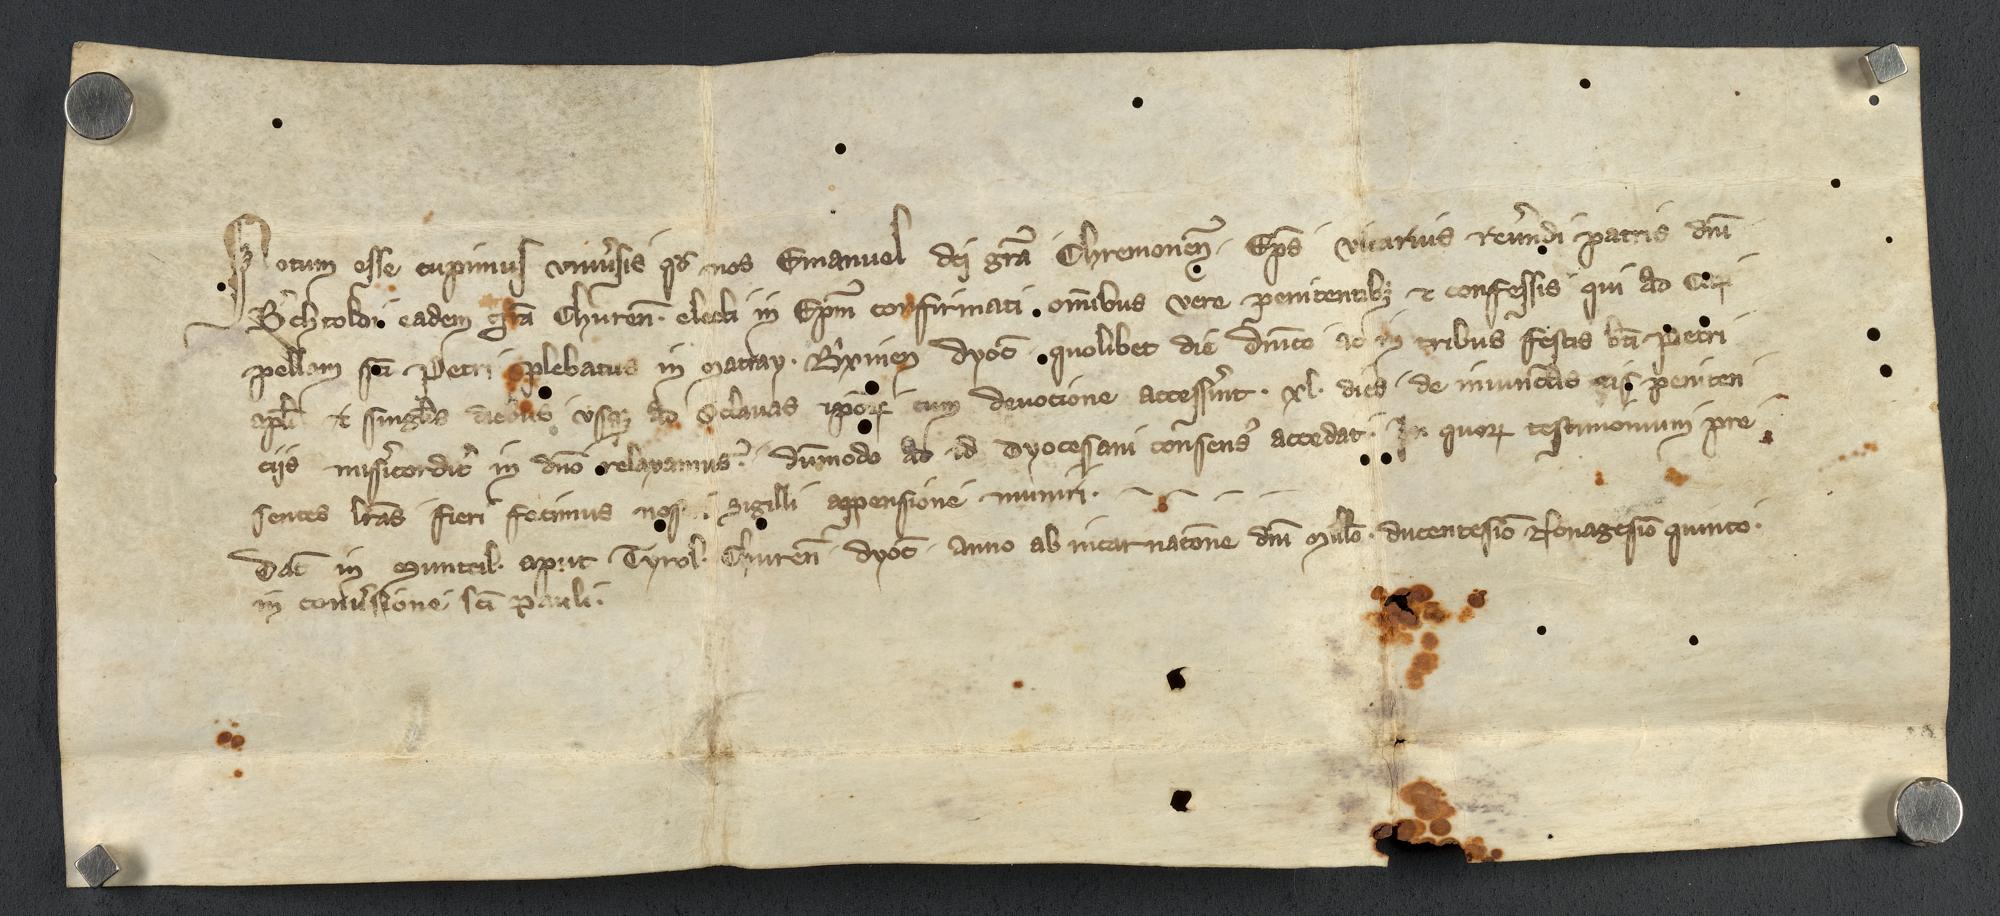 Notum esse cupimus vniu̕sis qd̕ nos Emanuel dei gr̄a Chremonen̄. Ep̄s vicarius reu̕endi patris dn̄i
B̕chtoldi eadem gr̄a Churen̄. electi in Ep̄m confirmati omībus vere penitentibꝫ ⁊ confessis qui ad Ca
pellam sc̄i Petri plebatus in Matray. Brixinen̄ dyoc̄. quolibet die dn̄ico ac in tribus festis bt̄i Petri
apl̄i et singl̄is diebus vsqꝫ ad Octauas ip̄oꝝ cum deuocione access̕int. xl. dies de iniunctis eis peniten
cijs mis̕icordit̕ in dn̄o relaxamus. dūmodo ad id dyocesani consens᾿ accedat. In quoꝝ testimonium pre
sentes lr̄as fieri fecimus nostri sigilli appensione muniri.
Dat̄ in Munteil. aput Tyrol. Churen̄ dyoc̄. anno ab incarnatōne dn̄i Mill̄o. ducentesīo Nonagesīo quinto.
in conu̕sione sc̄i Pauli.